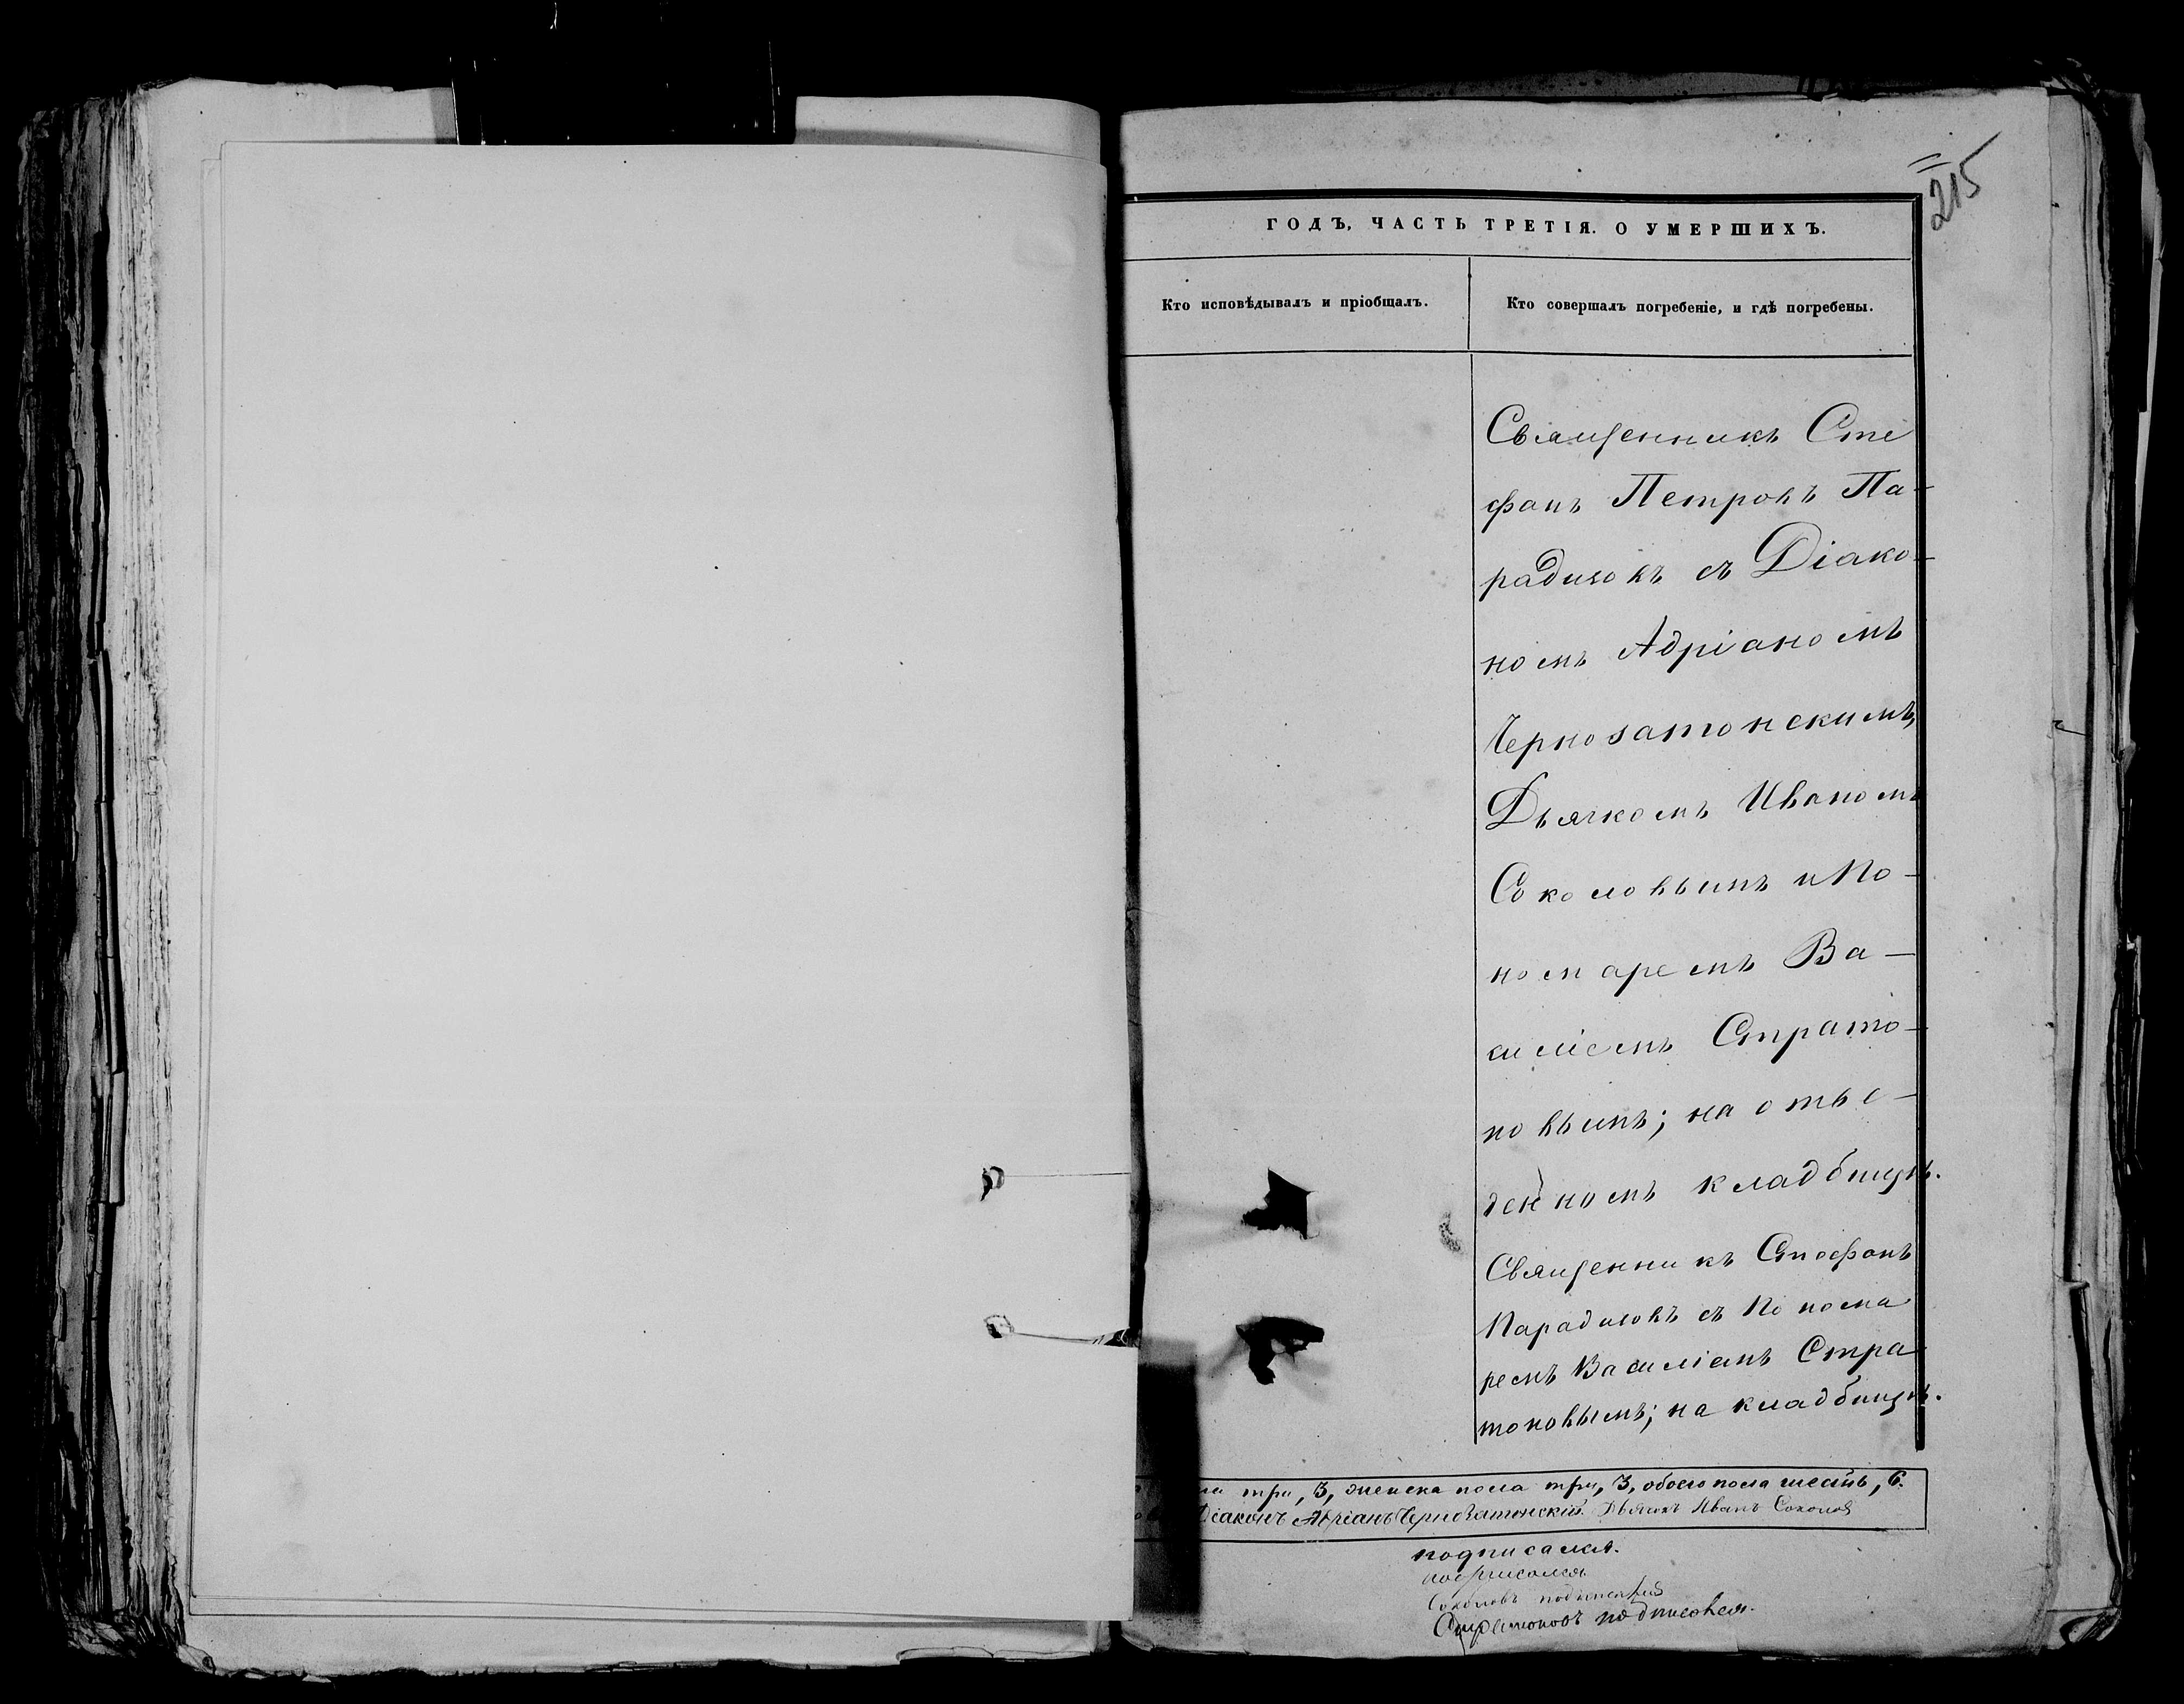 215
ГОДЪ, ЧАСТЬ ТРЕТІЯ. О УМЕРШИХЪ.
Кто исповѣдывалъ и пріобщалъ.
Кто совершалъ погребеніе, и гдѣ погребены.
Священникъ Сте
фанъ Петровъ Па-
радизовъ съ Діако-
номъ Адріаномъ
Чернозатонскимъ,
Дьячкомъ Иваномъ
Соколовымъ и По-
номаремъ Ва-
силіемъ Страто-
новымъ; на отве-
денномъ кладбищѣ.
Священникъ Стефанъ
Парадизовъ съ Понома
ремъ Василіемъ Стра
тоновымъ; на кладбищѣ.
три, 3, женска пола три, 3, обоего пола шесть, 6.
Діаконъ Адріанъ Чернозатонскій. Дьячекъ Иванъ Соколов
подписался.
подписался
Соколовъ подписался
Стратоновъ подписався.